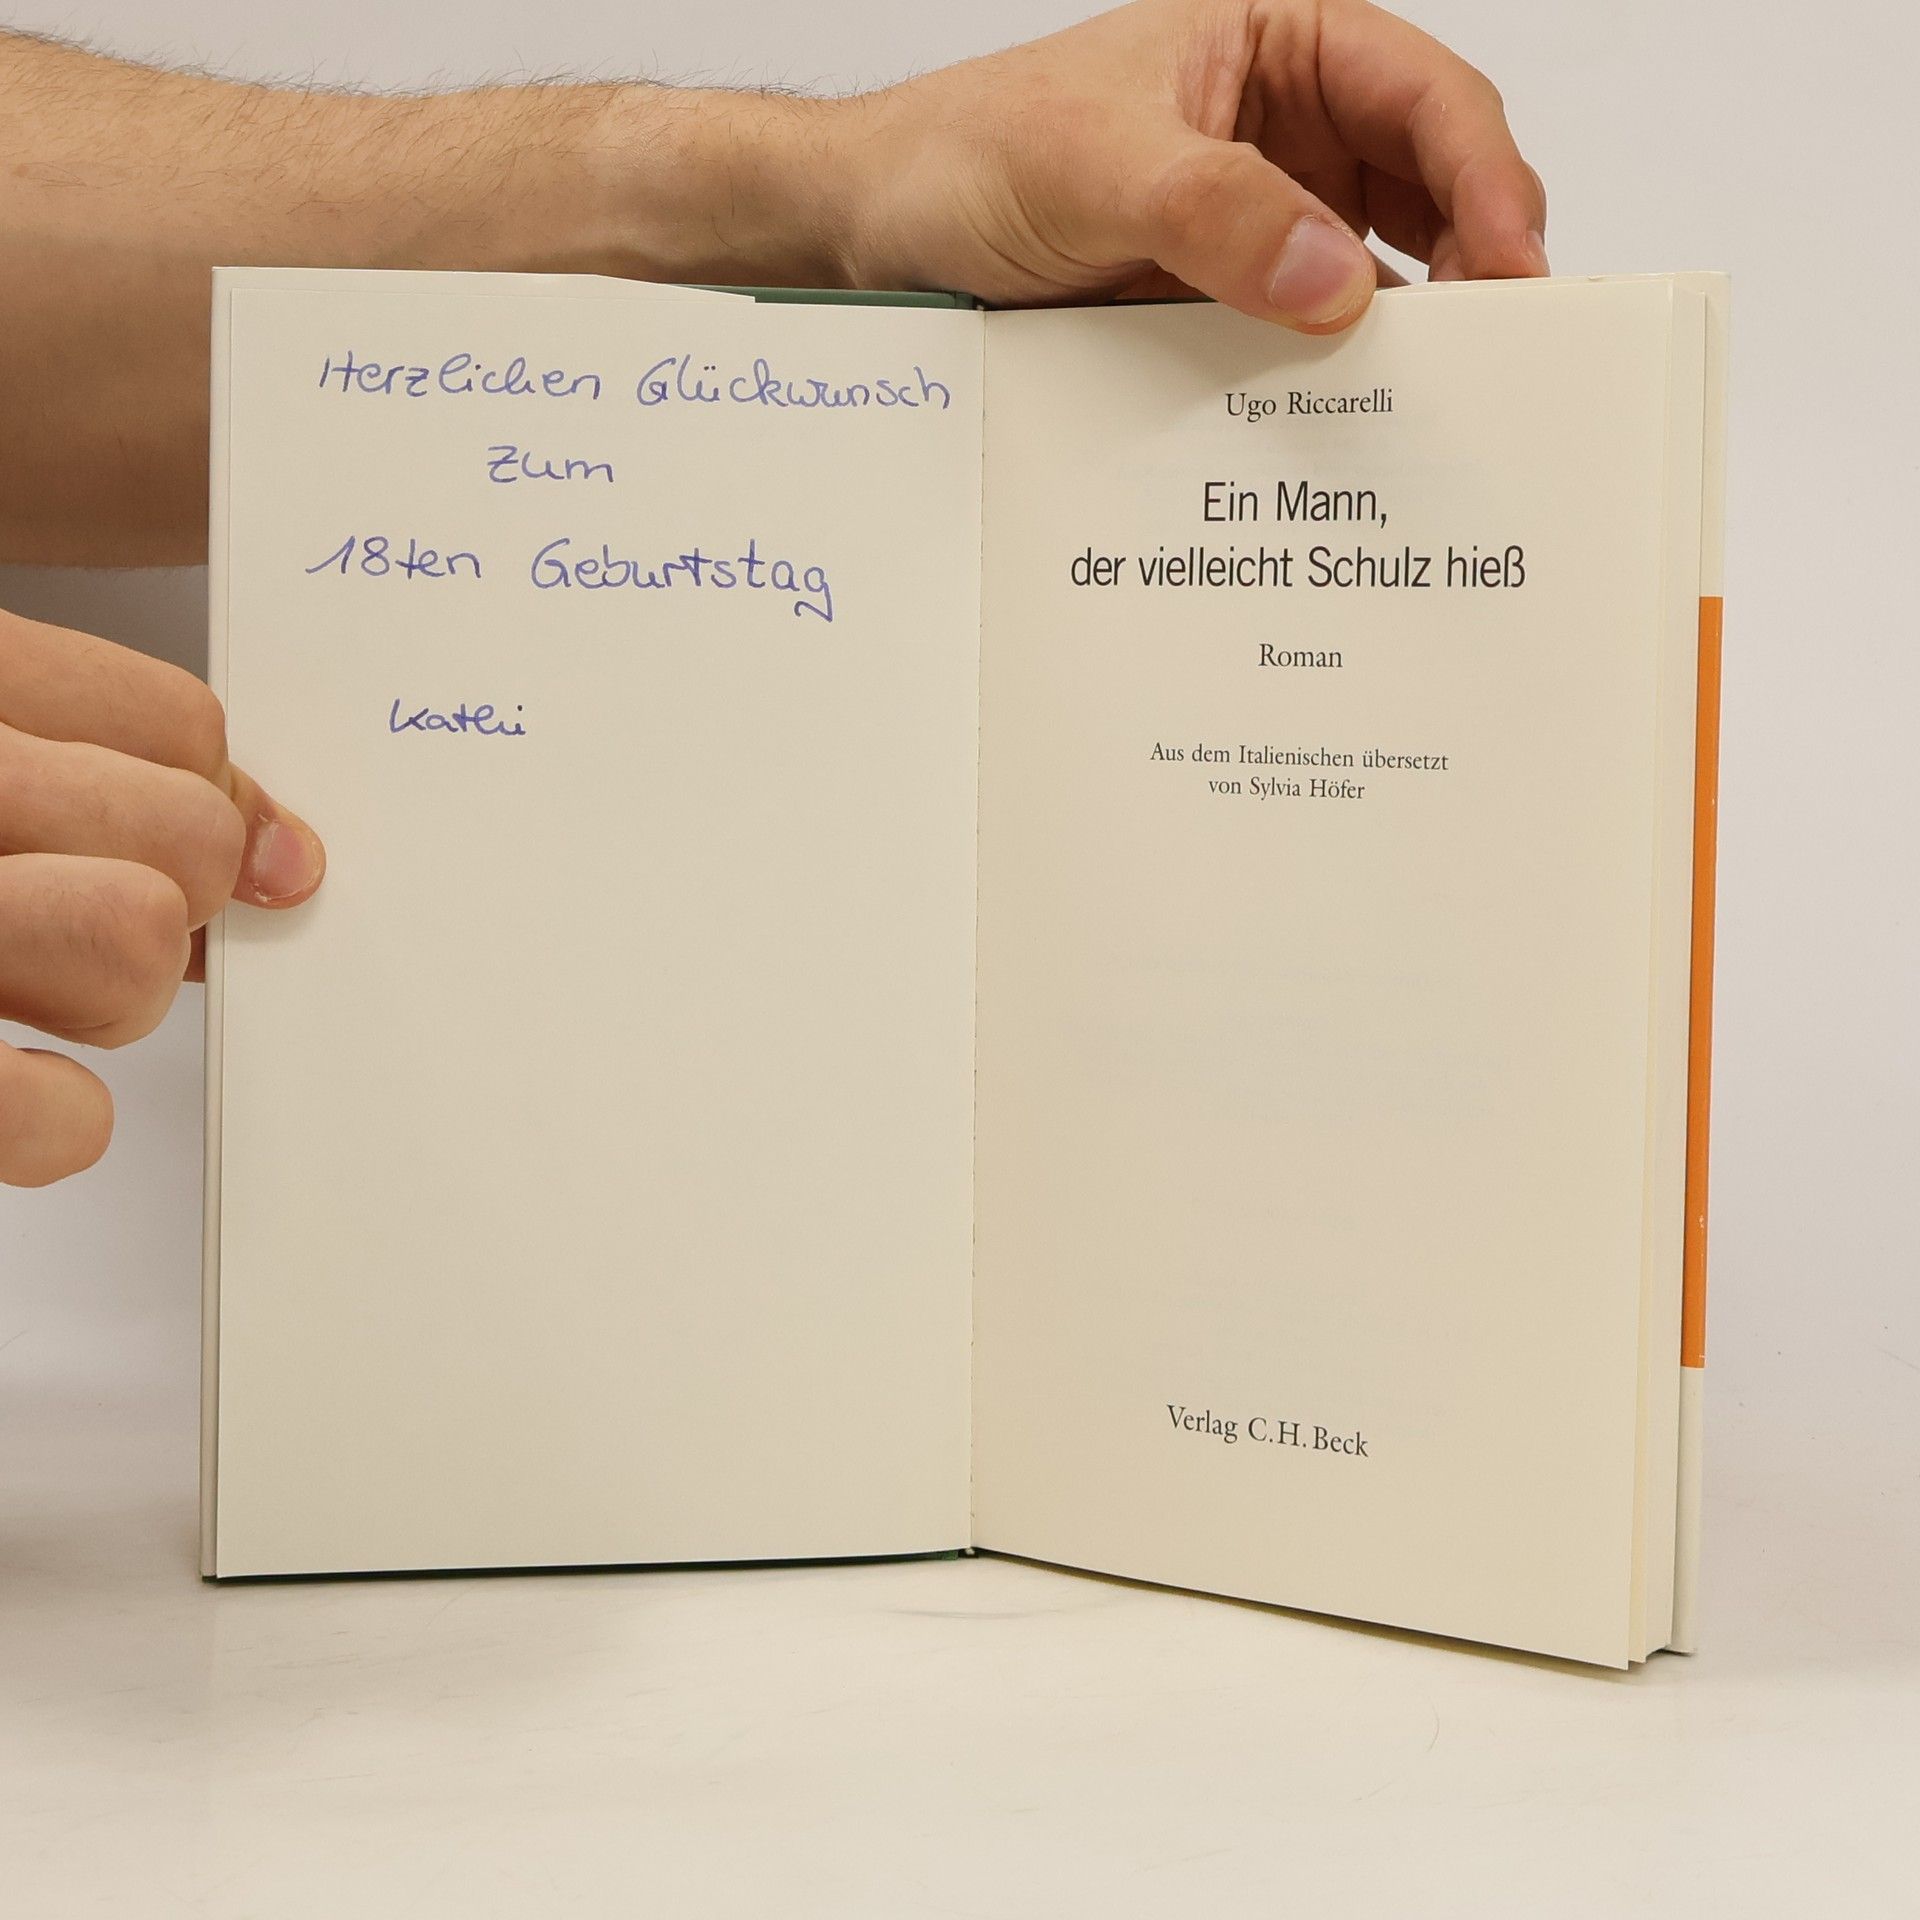 Herzlichen Glückwunsch
zum
18ten Geburtstag
Kathi
Ugo Riccarelli
Ein Mann,
der vielleicht Schulz hieß
Roman
Aus dem Italienischen übersetzt
von Sylvia Höfer
Verlag C.H.Beck